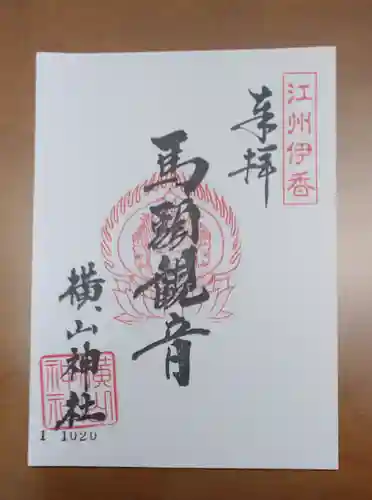 江州伊香
来拝
馬頭観音
横山神社
横山
神社
1 1020